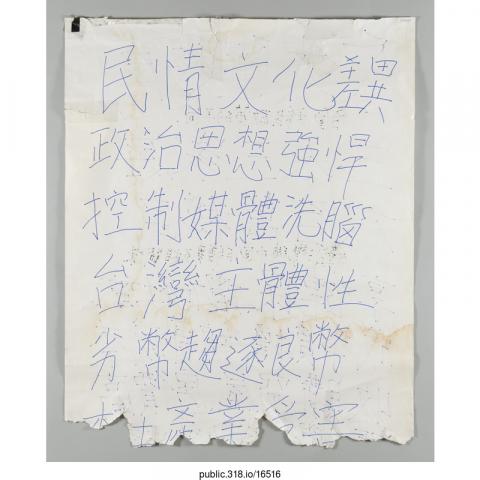 民情文化差異
政治思想強悍
控制媒體洗腦
台灣王體性
劣幣趨逐良幣
產業
public.318.io/16516